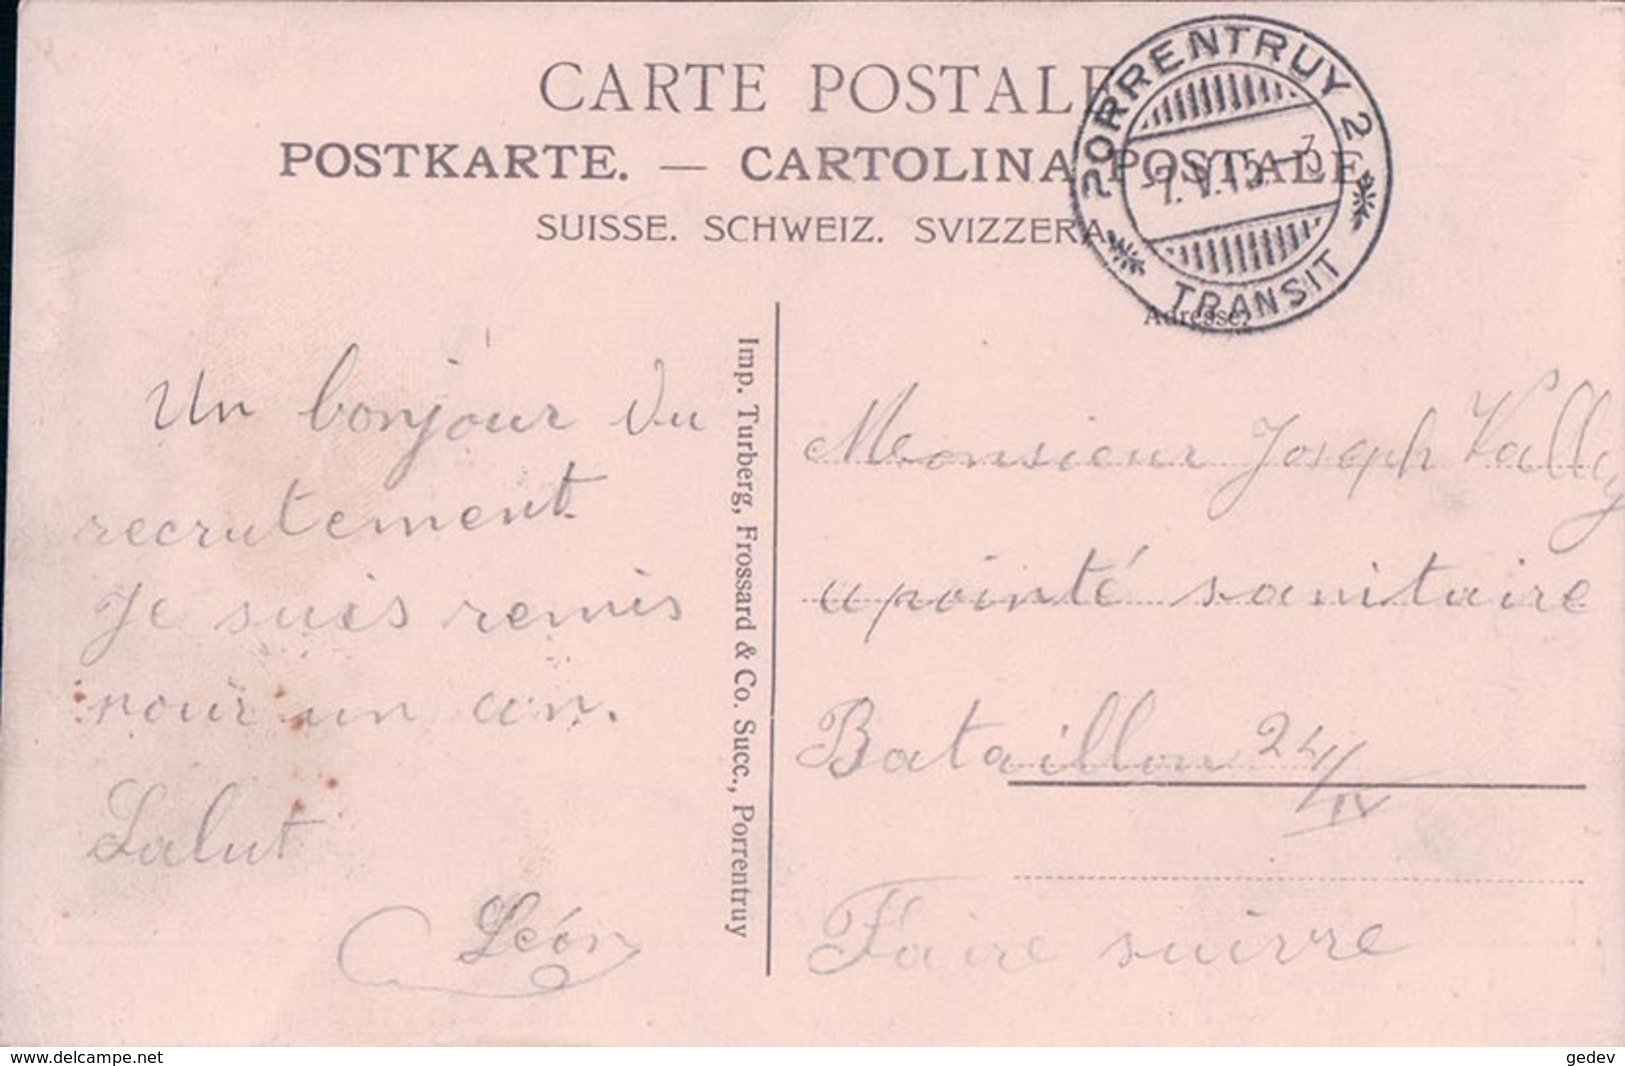 CARTE POSTALE
POSTKARTE. — CARTOLINA POSTALE
SUISSE. SCHWEIZ. SVIZZERA
PORRENTRUY 2
-7.V.15.-3
TRANSIT
Adresse,
Un bonjour du
recrutement
Je suis remis
pour un an.
Salut
Léon
Imp. Turberg, Frossard & Co. Succ., Porrentruy
Monsieur Joseph Vally
apointé sanitaire
Bataillon 24/IV
Faire suivre
www.delcampe.net
gedev